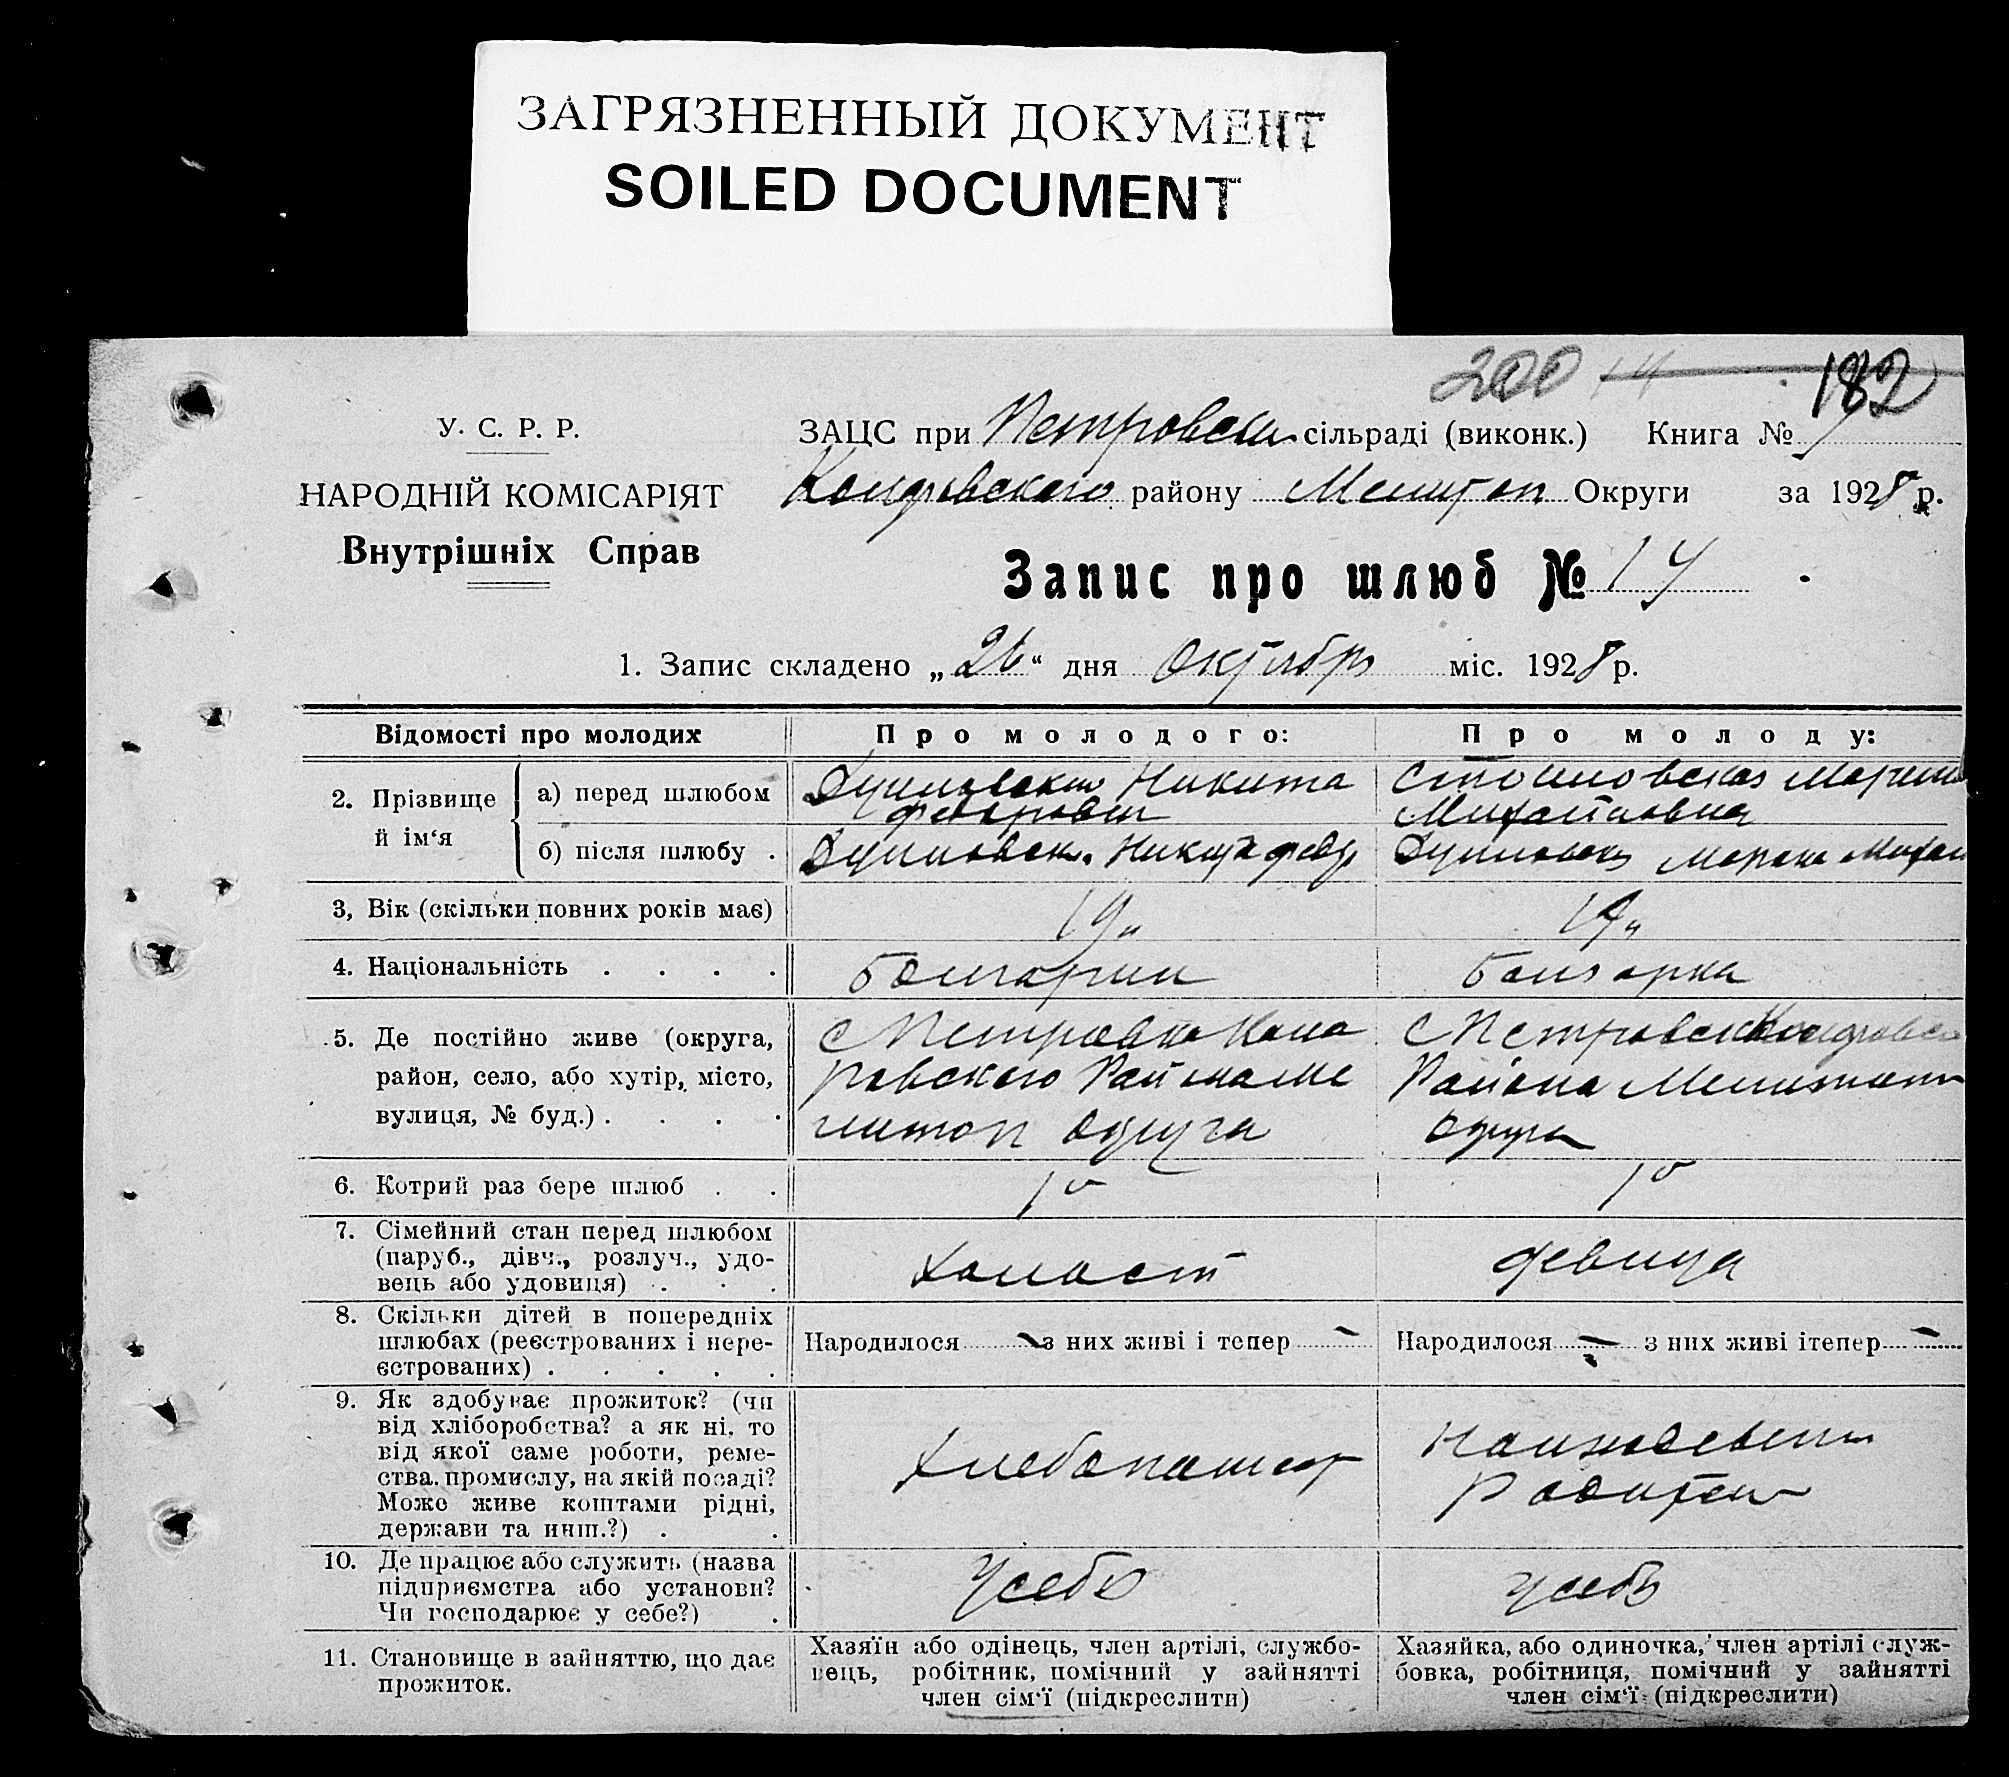 ЗАГРЯЗНЕННЫЙ ДОКУМЕНТ
SOILED DOCUMENT
200 14 182
У. С. Р. Р.
НАРОДНІЙ КОМІСАРІЯТ
Внутрішніх Справ
ЗАЦС при Петровск сільраді (виконк.) Книга №
району Мелитоп Округи за 1928 р.
Запис про шлюб №
1. Запис складено „26“ дня Октября міс. 1928 р.
Відомості про молодих
Про молодого:
Про молоду:
2. Прізвище й ім‘я
а) перед шлюбом
Никита
Федорович
Марина
Михайловна
б) після шлюбу .
Никита Фед
Михай
3, Вік (скільки повних років має)
19
19
4. Національність . . . .
Болгарин
Болгарка
5. Де постійно живе (округа,
район, село, або хутір, місто,
вулиця, № буд.) . . . .
с Петровка
ровского Района Ме
литоп округа
с Петровка
Района Мелитоп
округа
6. Котрий раз бере шлюб . .
1й
1й
7. Сімейний стан перед шлюбом
(паруб., дівч., розлуч., удо-
вець або удовиця) . . .
холост
девица
8. Скільки дітей в попередніх
шлюбах (реєстрованих і нере-
єстрованих) . . . . .
Народилося — з них живі і тепер —
Народилося — з них живі ітепер —
9. Як здобуває прожиток? (чи
від хліборобства? а як ні, то
від якої саме роботи, реме-
ства, промислу, на якій посаді?
Може живе коштами рідні,
держави та инш.?) . .
Хлебопашест
На иждевении
Родител
10. Де працює або служить (назва
підприємства або установи?
Чи господарює у себе?) .
у себя
у себя
11. Становище в зайняттю, що дає
прожиток.
Хазяїн або одінець, член артілі, службо-
вець, робітник, помічний у зайнятті
член сім‘ї (підкреслити)
Хазяйка, або одиночка, член артілі служ-
бовка, робітниця, помічний у зайнятті
член сім‘ї (підкреслити)